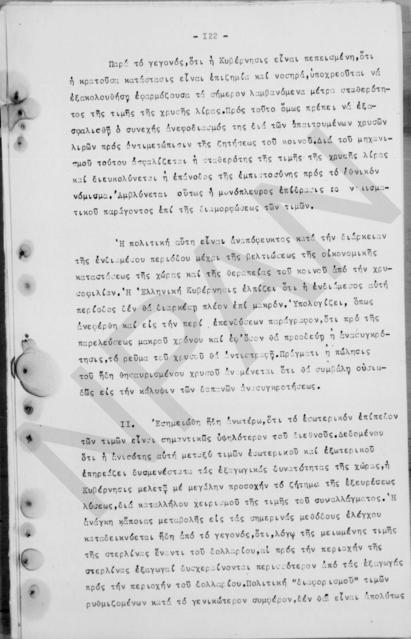 - 122 -
Παρά τό γεγονός,ὅτι ἡ Κυβέρνησις εἶναι πεπεισμένη,ὅτι
ἡ κρατοῦσα κατάστασις εἶναι ἐπιζημία καί νοσηρά,ὑποχρεοῦται νά
ἐξακολουθήση ἐφαρμόζουσα τά σήμερον λαμβανόμενα μέτρα σταθερότη-
τος τῆς τιμῆς τῆς χρυσῆς λίρας.Πρός τοῦτο ὅμως πρέπει νά ἐξα-
σφαλισθῆ ὁ συνεχής ἀνεφοδιασμός της διά τῶν ἀπαιτουμένων χρυσῶν
λιρῶν πρός ἀντιμετώπισιν τῆς ζητήσεως τοῦ κοινοῦ.Διά τοῦ μηχανι-
σμοῦ τούτου ἀσφαλίζεται ἡ σταθερότης τῆς τιμῆς τῆς χρυσῆς λίρας
καί διευκολύνεται ἡ ἐπάνοδος τῆς ἐμπιστοσύνης πρός τό ἐθνικόν
νόμισμα.Ἀμβλύνεται οὕτως ἡ μονόπλευρος ἐπίδρασις νομισμα-
τικοῦ παράγοντος ἐπί τῆς διαμορφώσεως τῶν τιμῶν.
Ἡ πολιτική αὕτη εἶναι ἀναπόφευκτος κατά τήν διάρκειαν
τῆς ἐνδιαμέσου περιόδου μέχρι τῆς βελτιώσεως τῆς οἰκονομικῆς
καταστάσεως τῆς χώρας καί τῆς θεραπείας τοῦ κοινοῦ ἀπό τήν χρυ-
σοφιλίαν.Ἡ Ἑλληνική Κυβέρνησις ἐλπίζει ὅτι ἡ ἐνδιάμεσος αὐτή
περίοδος δέν θά διαρκέση πλέον ἐπί μακρόν.Ὑπολογίζει, ὅπως
ἀνεφέρθη καί εἰς τήν περί ἐπενδύσεων παράγραφον,ὅτι πρό τῆς
παρελεύσεως μακροῦ χρόνου καί ἐφ'ὅσον θά προοδεύη ἡ ἀνασυγκρό-
τησις,τό ρεῦμα τοῦ χρυσοῦ θά ἀντιστραφῆ.Πράγματι ἡ πώλησις
τοῦ ἤδη θησαυρισμένου χρυσοῦ ἀναμένεται ὅτι θά συμβάλη οὐσιω-
δῶς εἰς τήν κάλυψιν τῶν δαπανῶν ἀνασυγκροτήσεως.
II. Ἐσημειώθη ἤδη ἀνωτέρω,ὅτι τό ἐσωτερικόν ἐπίπεδον
τῶν τιμῶν εἶναι σημαντικῶς ὑψηλότερον τοῦ διεθνοῦς.Δεδομένου
ὅτι ἡ ἀνισότης αὐτή μεταξύ τιμῶν ἐσωτερικοῦ καί ἐξωτερικοῦ
ἐπηρεάζει δυσμενέστατα τάς ἐξαγωγικάς δυνατότητας τῆς χώρας,ἡ
Κυβέρνησις μελετᾷ μέ μεγάλην προσοχήν τό ζήτημα τῆς ἐξευρέσεως
λύσεως,διά καταλλήλου χειρισμοῦ τῆς τιμῆς τοῦ συναλλάγματος.Ἡ
ἀνάγκη κάποιας μεταβολῆς εἰς τάς σημερινάς μεθόδους ἐλέγχου
καταδεικνύεται ἤδη ἀπό τό γεγονός,ὅτι,λόγῳ τῆς μειωμένης τιμῆς
τῆς στερλίνας ἔναντι τοῦ δολλαρίου,αἱ πρός τήν περιοχήν τῆς
στερλίνας ἐξαγωγαί δυσχεραίνονται περισσότερον ἀπό τάς ἐξαγωγάς
πρός τήν περιοχήν τοῦ δολλαρίου.Πολιτική "διαφορισμοῦ" τιμῶν
ρυθμιζομένων κατά τό γενικώτερον συμφέρον,δέν θά εἶναι ἀπολύτως